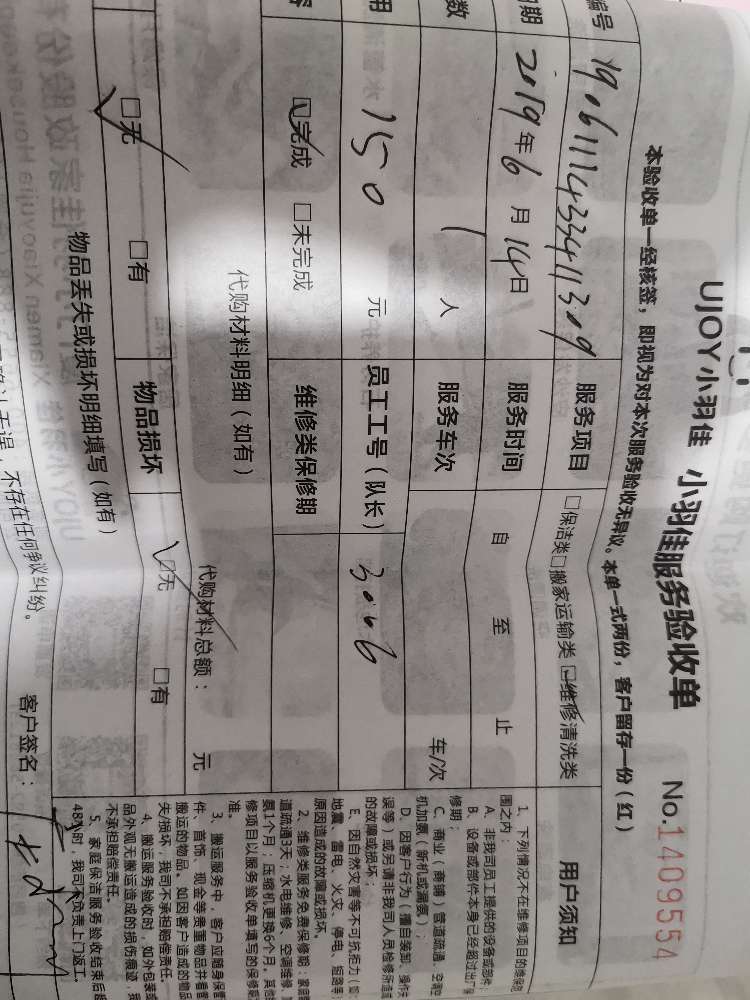 UJOY小羽佳 小羽佳服务验收单 No.1409554
本验收单一经核签，即视为对本次服务验收无异议。本单一式两份，客户留存一份（红）
编号 服务项目 □保洁类□搬家运输类☑维修清洗类
期 2019年6月14日 服务时间 自 至 止
数 1 人 服务车次 车/次
用 150 元 员工工号（队长） 3006
☑完成 □未完成 维修类保修期
代购材料明细（如有） 代购材料总额： 元
☑无 □有 物品损坏 ☑无 □有
物品丢失或损坏明细填写（如有）
不存在任何争议纠纷。
客户签名：
用户须知
1、下列情况不在维修项目的维保范
围之内：
A、非我司员工提供的设备或部件
B、设备或部件本身已经超过出厂保
修期；
C、商业（商铺）管道疏通、空调空
机加氨（新机或漏氨）；
D、因客户行为（擅自装卸、操作失
误等）或另请非我司人员检修所造成
的故障或损坏；
E、因自然灾害等不可抗拒力（如
地震、雷电、火灾、停电、短路等
原因造成的故障或损坏。
2、维修类服务免费保修期：家庭管
道疏通3天；水电维修、空调维修、
氨1个月；压缩机更换6个月。其他维
修项目以服务验收单填写的保修期
准。
3、搬运服务中，客户应随身保管
件、首饰、现金等贵重物品并看管
搬运的物品。如因客户造成的物品
失/损坏，我司不承担赔偿责任。
4、搬运服务验收时，如外包装或
品外观无搬运造成的损伤痕迹，我
不承担赔偿责任。
5、家庭保洁服务验收结束后超
48小时，我司不负责上门返工。